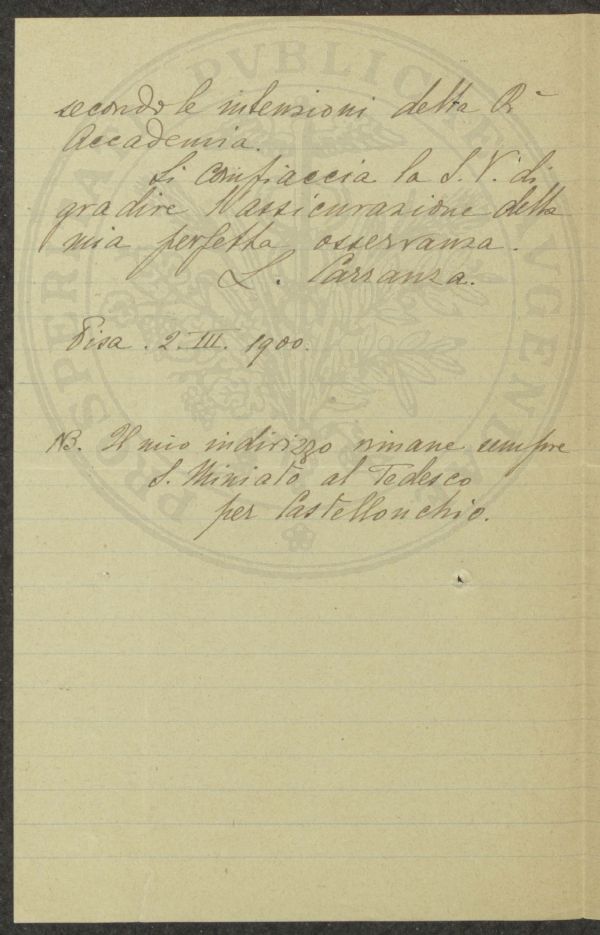 secondo le intenzioni della R.
Accademia.
Si compiaccia la S. V. di
gradire l'assicurazione della
mia perfetta osservanza.
L. Carranza.
Pisa. 2. III. 1900.
NB. Il mio indirizzo rimane sempre
S. Miniato al Tedesco
per Castellonchio.
PROSPERITATI PVBLICAE AVGENDAE